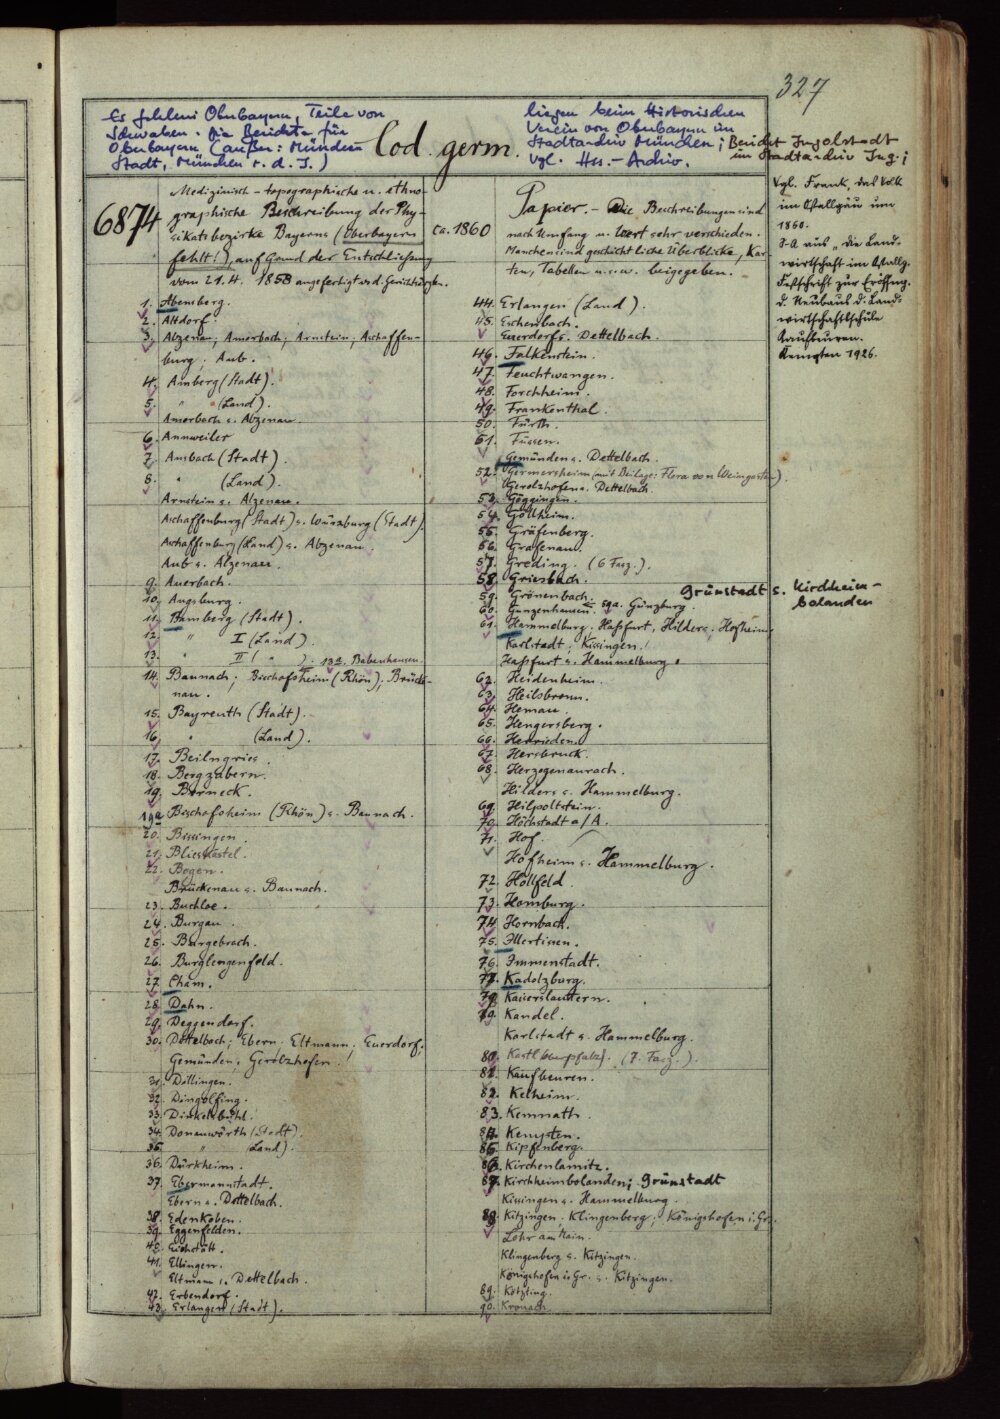 327
Es fehlen: Oberbayern, Teile von
Schwaben. Die Berichte für
Oberbayern (außer: München
Stadt, München r. d. I.)
liegen beim Historischen
Verein von Oberbayern im
Stadtarchiv München; Bericht Ingolstadt
im Stadtarchiv Ing.;
vgl. Hss.-Archiv.
Cod. germ.
6874
Medizinisch-topographische u. ethno-
graphische Beschreibung der Phy-
sikatsbezirke Bayerns (Oberbayern
fehlt!), auf Grund der Entschließung
vom 21.4. 1858 angefertigt v. d. Gerichtsärzten.
ca. 1860
Papier. - Die Beschreibungen sind
nach Umfang u. Wert sehr verschieden.
Manchen sind geschichtliche Überblicke, Kar-
ten, Tabellen u.s.w. beigegeben.
Vgl. Frank, das Volk
im Allgäu um
1860.
S-A aus „die Land-
wirtschaft im Allg.
Festschrift zur Eröffng.
d. Neubaus d. Land-
wirtschaftschule
Kaufbeuren.
Kempten 1926.
1. Abensberg.
2. Altdorf.
3. Alzenau, Amorbach, Arnstein, Aschaffen-
burg, Aub.
4. Amberg (Stadt).
5. " (Land).
Amorbach s. Alzenau.
6. Annweiler
7. Ansbach (Stadt).
8. " (Land).
Arnstein s. Alzenau.
Aschaffenburg (Stadt) s. Würzburg (Stadt).
Aschaffenburg (Land) s. Alzenau.
Aub s. Alzenau.
9. Auerbach.
10. Augsburg.
11. Bamberg (Stadt).
12. " I (Land).
13. " II ( " ). 13a. Babenhausen.
14. Baunach; Bischofsheim (Rhön); Brücke-
nau.
15. Bayreuth (Stadt).
16. " (Land).
17. Beilngries.
18. Bergzabern.
19. Berneck.
19a Bischofsheim (Rhön) s. Baunach.
20. Bissingen.
21. Blieskastel.
22. Bogen.
Brückenau s. Baunach.
23. Buchloe.
24. Burgau.
25. Burgebrach.
26. Burglengenfeld.
27. Cham.
28. Dahn.
29. Deggendorf.
30. Dettelbach; Ebern; Eltmann; Euerdorf;
Gemünden; Gerolzhofen.
31. Dillingen.
32. Dingolfing.
33. Dinkelsbühl.
34. Donauwörth (Stadt).
35. " (Land).
36. Dürkheim.
37. Ebermannstadt.
Ebern s. Dettelbach.
38. Edenkoben.
39. Eggenfelden.
40. Eichstätt.
41. Ellingen.
Eltmann s. Dettelbach.
42. Erbendorf.
43. Erlangen (Stadt).
44. Erlangen (Land).
45. Eschenbach.
Euerdorf s. Dettelbach.
46. Falkenstein.
47. Feuchtwangen.
48. Forchheim.
49. Frankenthal.
50. Fürth.
51. Füssen.
Gemünden s. Dettelbach.
52. Germersheim (mit Beilage: Flora von Weingarten).
Gerolzhofen s. Dettelbach.
53. Göggingen.
54. Göllheim.
55. Gräfenberg.
56. Grafenau.
57. Greding. (6 Fasz.).
58. Griesbach.
Grünstadt s. Kirchheim-
bolanden
59. Grönenbach.
60. Gunzenhausen. 59a. Günzburg.
61. Hammelburg, Haßfurt, Hilders, Hofheim,
Karlstadt; Kissingen.
Haßfurt s. Hammelburg.
62. Heidenheim.
63. Heilsbronn.
64. Hemau.
65. Hengersberg.
66. Herrieden.
67. Hersbruck.
68. Herzogenaurach.
Hilders s. Hammelburg.
69. Hilpoltstein.
70. Höchstadt a/A.
71. Hof.
Hofheim s. Hammelburg.
72. Hollfeld.
73. Homburg.
74. Hornbach.
75. Illertissen.
76. Immenstadt.
77. Kadolzburg.
78. Kaiserslautern.
79. Kandel.
Karlstadt s. Hammelburg.
80. Kastl (Oberpfalz). (7. Fasz.).
81. Kaufbeuren.
82. Kelheim.
83. Kemnath.
84. Kempten.
85. Kipfenberg.
86. Kirchenlamitz.
87. Kirchheimbolanden; Grünstadt
Kissingen s. Hammelburg.
88. Kitzingen; Klingenberg; Königshofen i. Gr.
Lohr am Main.
Klingenberg s. Kitzingen.
Königshofen i. Gr. s. Kitzingen.
89. Kötzting.
90. Kronach.